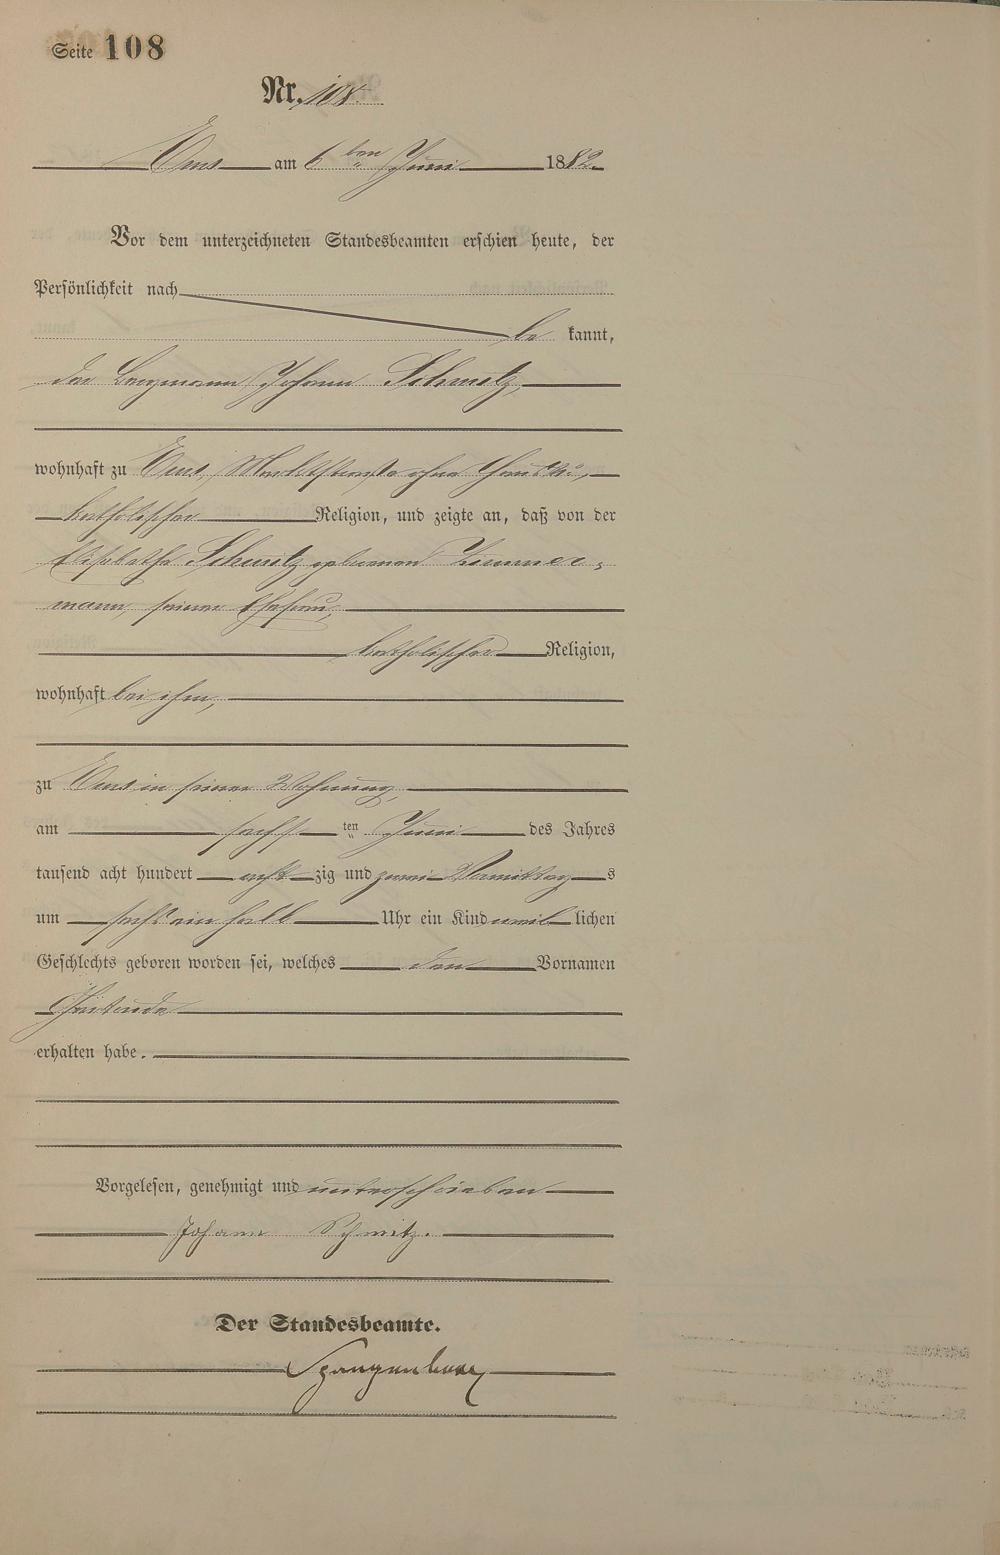 Seite 108
Nr. 108.
Ems am 6ten Juni 1882.
Vor dem unterzeichneten Standesbeamten erschien heute, der
Persönlichkeit nach
be kannt,
der Bergmann Johann Schmitz,
wohnhaft zu Ems, Marktstraße ohne Haus No,
katholischer Religion, und zeigte an, daß von der
Elisabetha Schmitz geborenen Zimmer-
mann, seiner Ehefrau,
katholischer Religion,
wohnhaft bei ihm,
zu Ems in seiner Wohnung,
am sechsten Juni des Jahres
tausend acht hundert acht zig und zwei Vormittags
um sechs ein halb Uhr ein Kind weiblichen
Geschlechts geboren worden sei, welches den Vornamen
erhalten habe.
Vorgelesen, genehmigt und unterschrieben
Johann Schmitz.
Der Standesbeamte.
Spangenberg